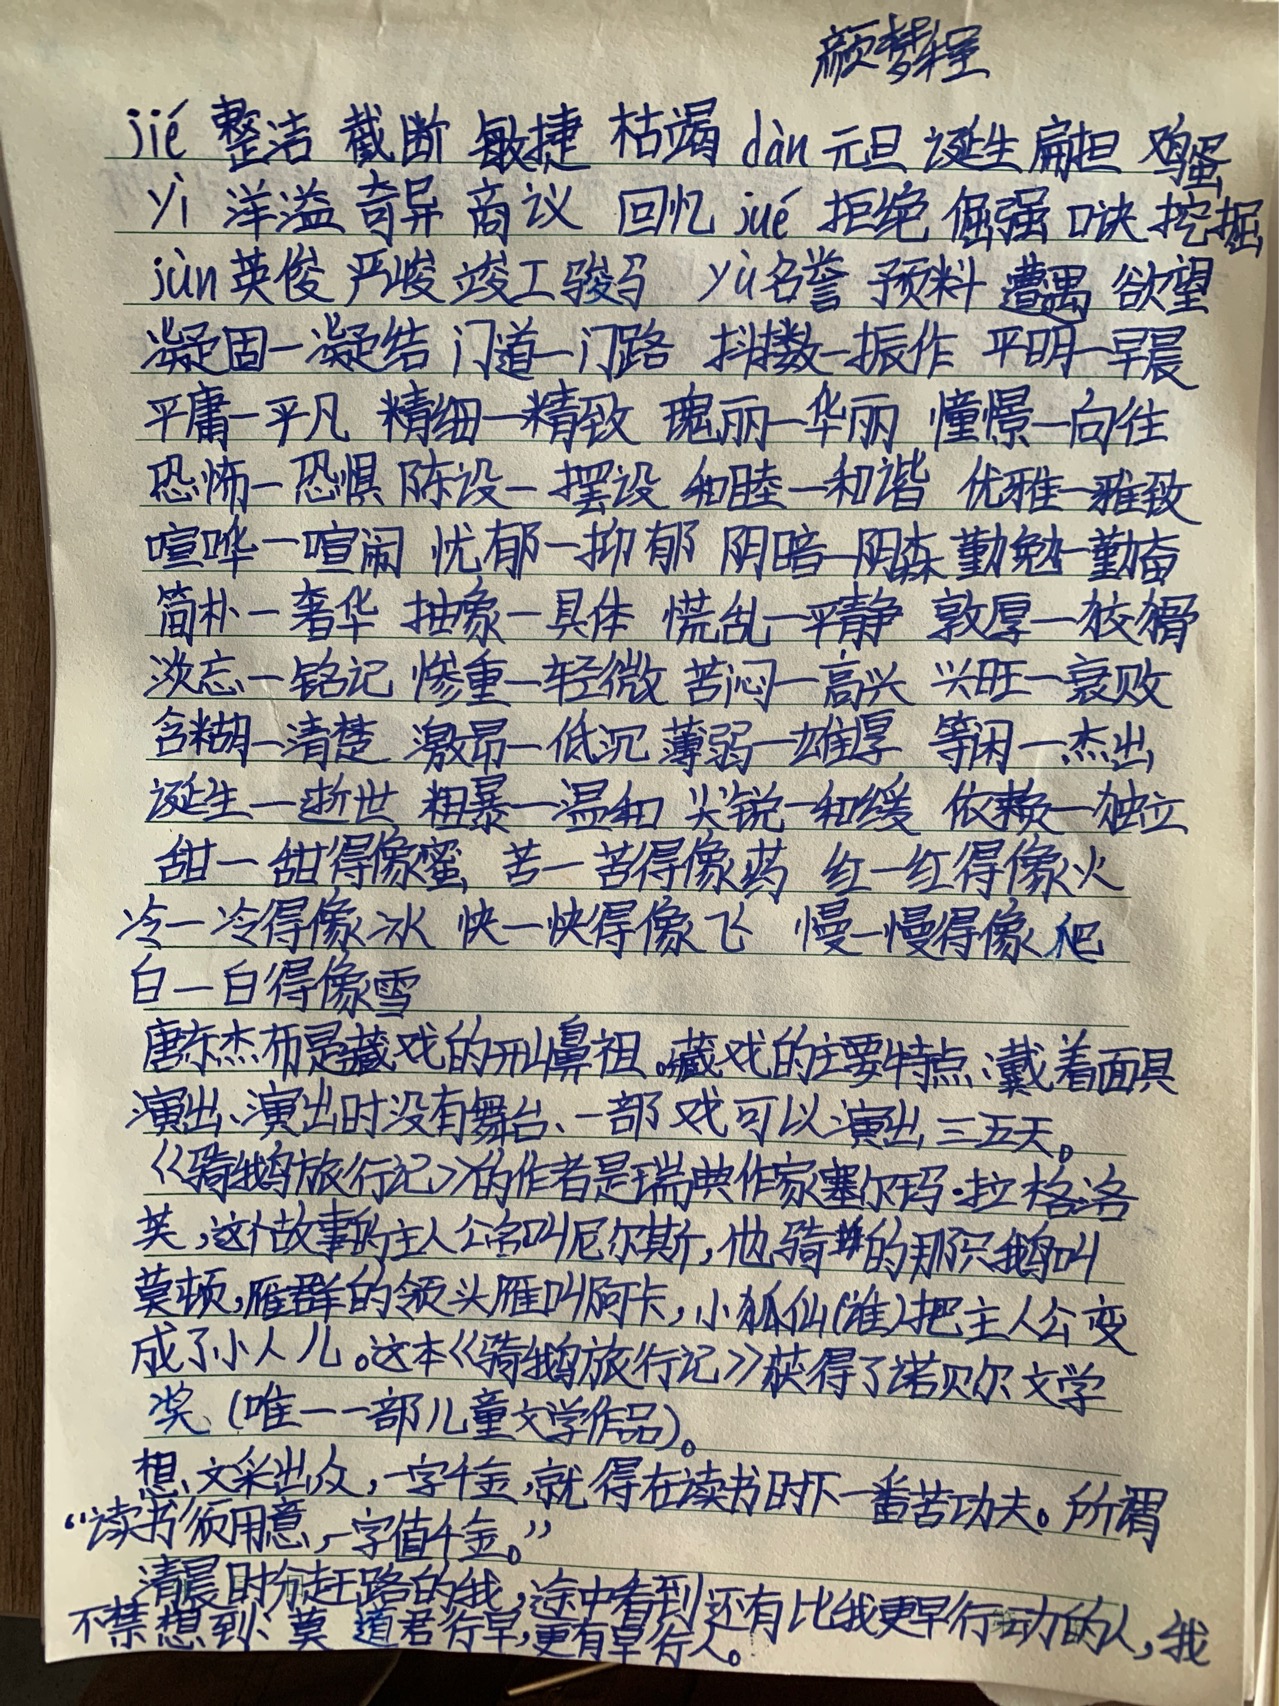 颜梦程
jié 整洁 截断 敏捷 枯竭 dàn 元旦 诞生 扁担 鸡蛋
yì 洋溢 奇异 商议 回忆 jué 拒绝 倔强 口诀 挖掘
jùn 英俊 严峻 竣工 骏马 yù 名誉 预料 遭遇 欲望
凝固—凝结 门道—门路 抖擞—振作 平明—早晨
平庸—平凡 精细—精致 瑰丽—华丽 憧憬—向往
恐怖—恐惧 陈设—摆设 和睦—和谐 优雅—雅致
喧哗—喧闹 忧郁—抑郁 阴暗—阴森 勤勉—勤奋
简朴—奢华 抽象—具体 慌乱—平静 敦厚—狡猾
淡忘—铭记 惨重—轻微 苦闷—高兴 兴旺—衰败
含糊—清楚 激昂—低沉 薄弱—雄厚 等闲—杰出
诞生—逝世 粗暴—温和 尖锐—和缓 依赖—独立
甜—甜得像蜜 苦—苦得像药 红—红得像火
冷—冷得像冰 快—快得像飞 慢—慢得像爬
白—白得像雪
唐东杰布是藏戏的开山鼻祖。藏戏的主要特点:戴着面具
演出、演出时没有舞台、一部戏可以演出三五天。
《骑鹅旅行记》的作者是瑞典作家塞尔玛·拉格洛
芙,这个故事的主人公名叫尼尔斯,他骑的那只鹅叫
莫顿,雁群的领头雁叫阿卡,小狐仙(谁)把主人公变
成了小人儿。这本《骑鹅旅行记》获得了诺贝尔文学
奖(唯一一部儿童文学作品)。
想文采出众,一字千金,就得在读书时下一番苦功夫。所谓
“读书须用意,一字值千金。”
清晨时分赶路的我,途中看到还有比我更早行动的人,我
不禁想到:莫道君行早,更有早行人。